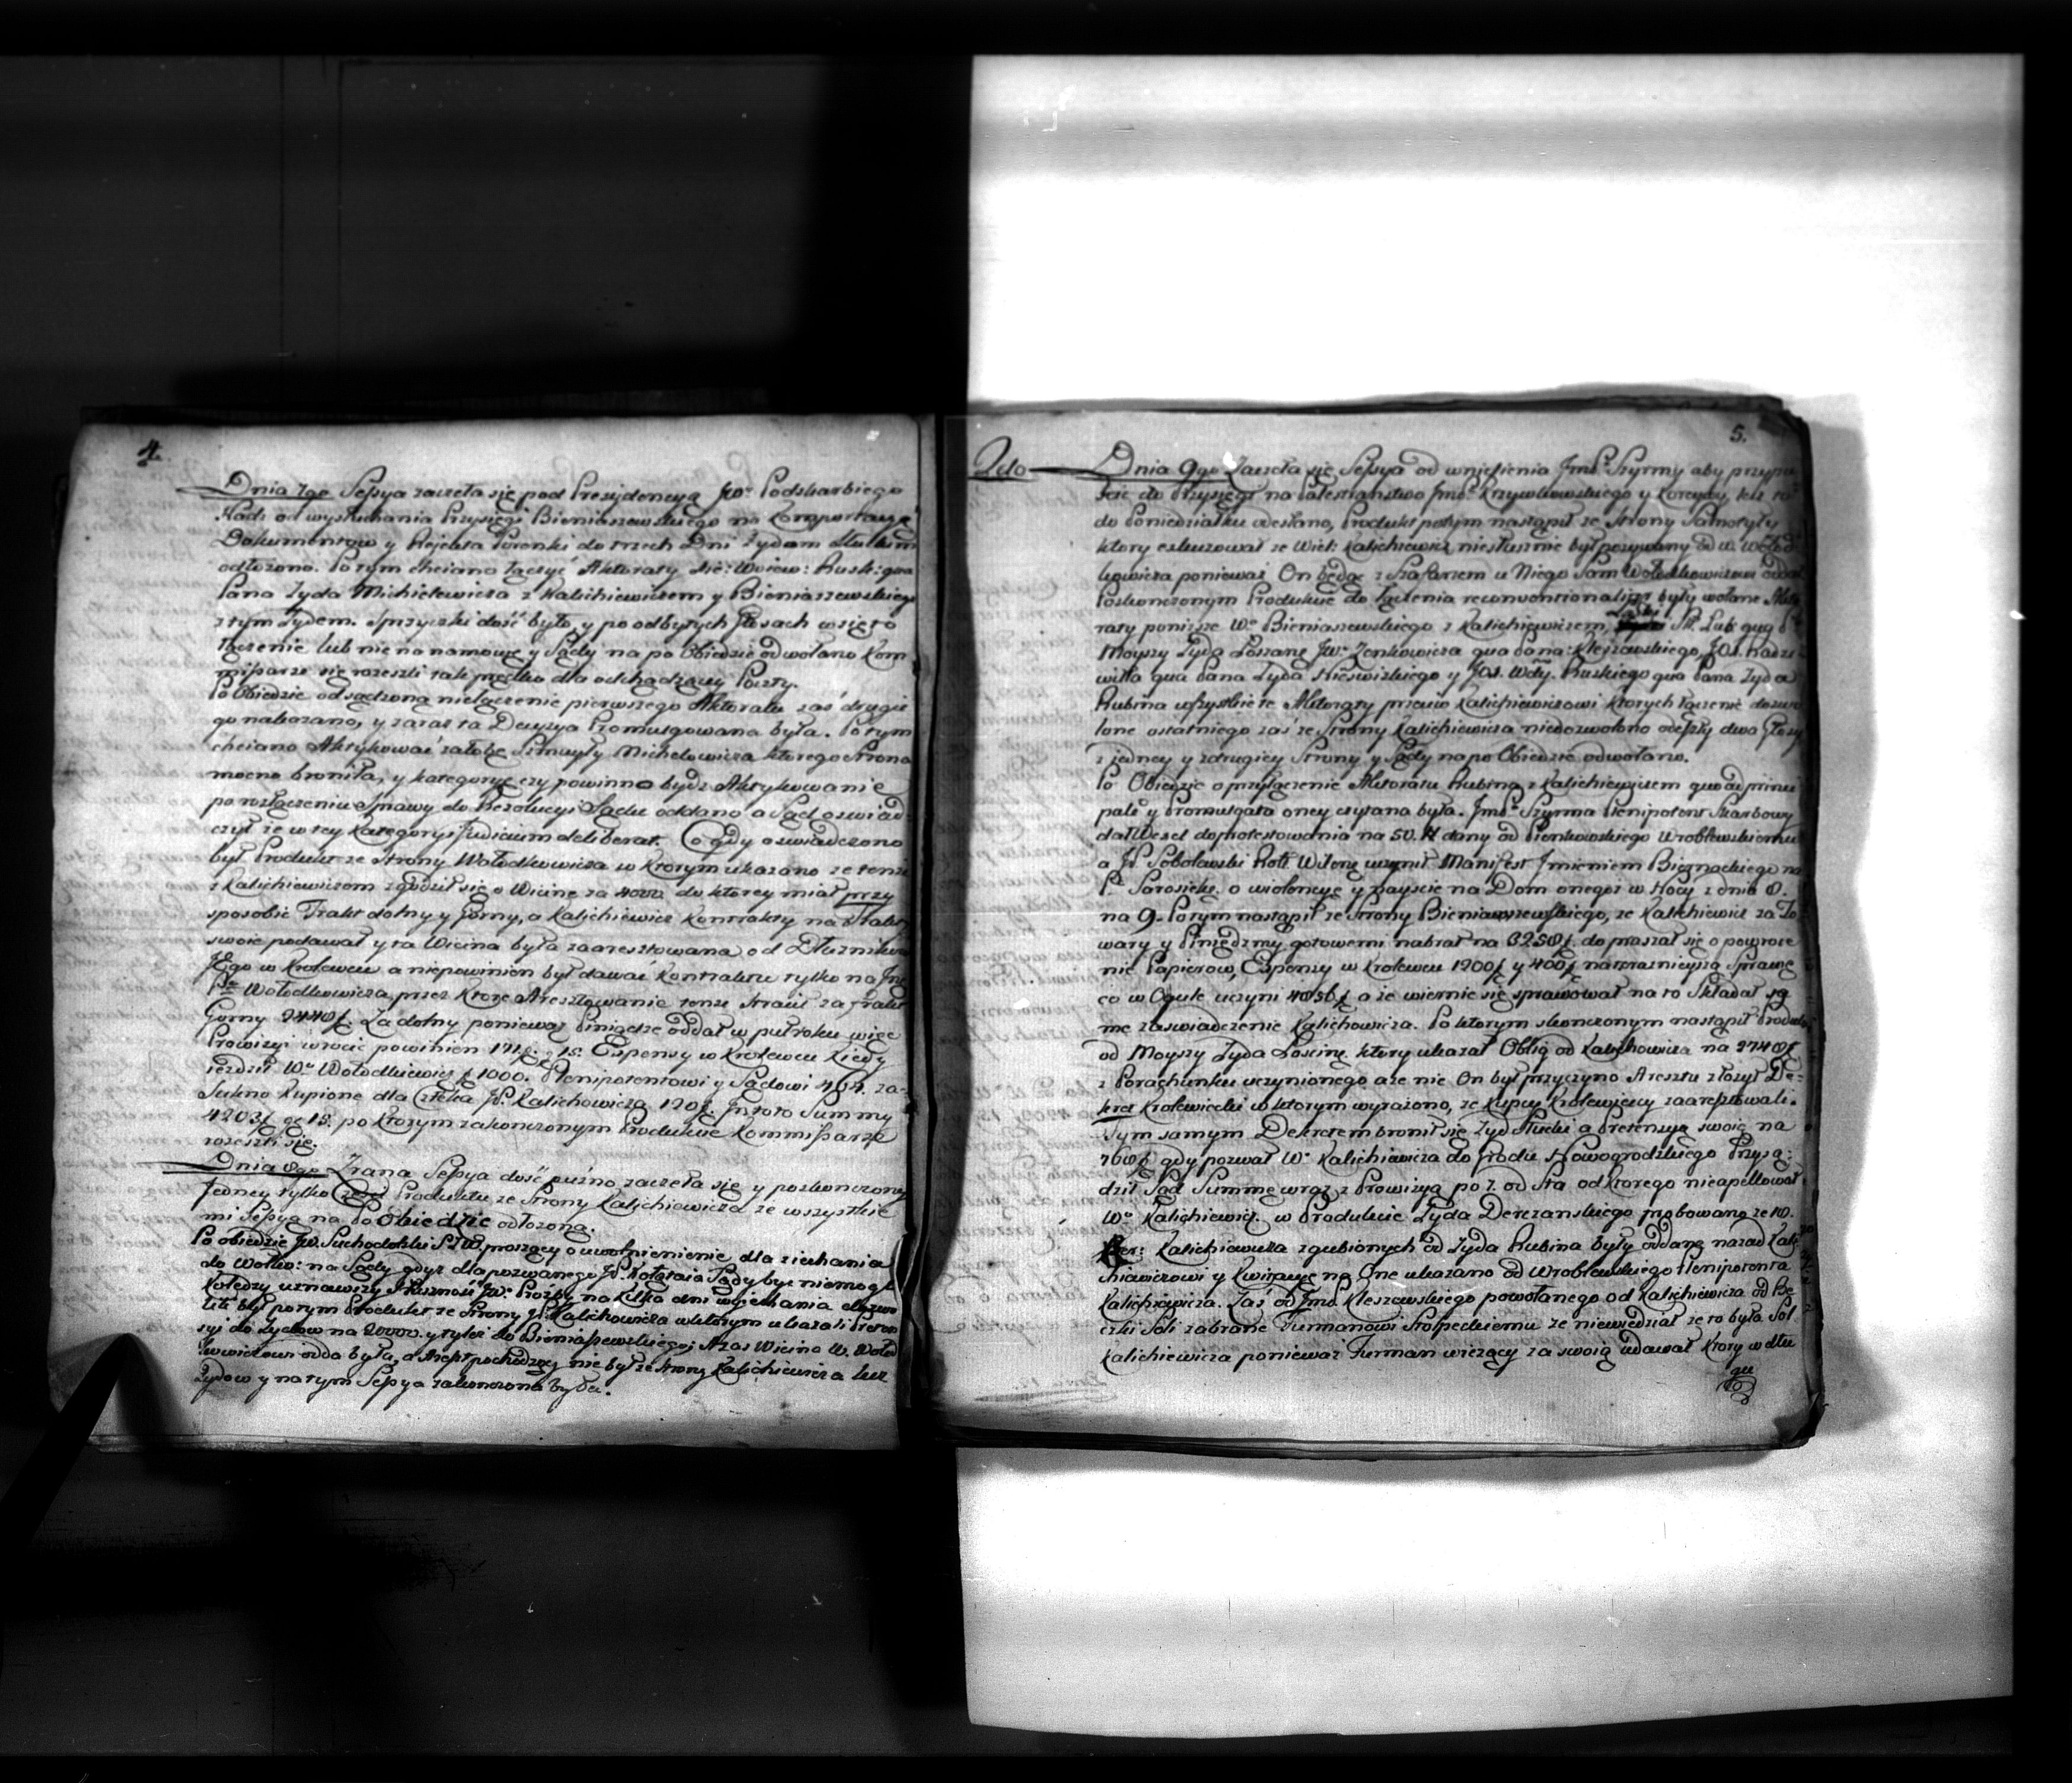 4.
Dnia 7go Sessya zaczeła się pod Prezydencyą JWo Podskarbiego
Nadr od wysłuchania Przysięgi Bieniaszewskiego na komportacyę
Dokumentow y Rejenta do trzech Dni Żydom
odłożono. Potym chciano łączyć Aktoraty Woiew: Rusk: qua
Pana Żyda Michielewicza z Kalichiewiczem y Bieniaszewskiego
z tym Żydem. Sprzyczki dość było, y po odbytych Głosach wzięto
łączenie lub nie na namowę y Sądy na po Obiedzie odwołano Kom
missarze się rozeszli tak prędko dla odchądzącey Poczty.
Po Obiedzie odsądzoną niełączenie pierwszego Aktoratu zaś drugie
go nakazano, y zaraz ta Decyzya Promulgowana była. Potym
chciano Aktykować żałobę Szmuyły Michelowicza ktorego Strona
mocno broniła, y kategoryę czy powinno bydz Aktykowanie
po rozłączeniu Sprawy do Rezolucyi Sądu oddano a Sąd oswiad
czył ze w tey Kategoryi Judicium deliberat. Co gdy oswiadczono
był Produkt ze Strony Wołodkowicza w ktorym ukazano ze tenże
z Kalichiewiczem zgodził się o Wicinę za 4000 do ktorey miał przy
sposobic Trakt dolny y Gorny, a Kalichiewicz Kontrakty na
swoie podawał y ta Wicina była zaaresztowana od Dłużnikow
Jego w Krolewcu a niepowinien był dawać kontraktu tylko na Jmć
Pa Wołodkowicza, przez ktore Aresztowanie tenze Stracił za Trakt
Gorny 2440 f. Za dolny poniewaz Pieniądze oddał w puł roku więc
Prowizyi wrocic powinien 171 f. g 15. Expensy w Krolewcu kiedy
iezdził Wo Wołodkiewicz f 1000. Plenipotentowi y Sądowi 404. za
Sukno Kupione dla Człeka JP. Kalichowicza 120 f. In toto Summy
4203 f gr 15. po ktorym zakonczonym Produkcie Kommissarze
rozeszli się.
Dnia 8go Zrana Sessya dość puźno zaczeła się y poskonczoney
Jedney tylko Części Produktu ze Strony Kalichiewicza ze wszystkie
mi Sessya na Po Obiedzie odłożona.
Po obiedzie JW. Suchodolski proszący o uwolnienienie dla ziechania
do Wołko: na Sądy gdyż dla pozwanego JP. Kołątaia Sądy byc niemogli
Koledzy uznawszy Słuszność JWo Prozby na kilka dni wyiechania dozwo
lili był potym Produkt ze Strony JP. Kalichowicza w ktorym ukazali Preten
syi do Żydow na 20000. y tyleż do Bieniaszewskiego; A zas Wicina W. Wołod
kowiczowi odda była, a Areszt pochodzący nie był ze Strony Kalichiewicza lecz
Żydow y na tym Sessya zakonczona była.
5.
2do Dnia 9go Zaczeła się Sessya od wniesienia JmćP. Szyrmy aby przypu
scic do Przysięgi na Palestranstwo JmćP. Krzywkowskiego y Korcycy, lecz to
do Poniedziałku odesłano, Produkt potym nastąpił ze Strony Samotyły
ktory exkuzował ze Wiel: Kalichiewicz niesłusznie był pozywany od W. Wołod
kowicza poniewaz On będąc z Szafarzem u Niego Sam Wołodkowiczowi oddał
Poskonczonym Produkcie do łączenia reconventionaliter były wołane Akto
raty ponizsze Wo Bieniaszewskiego z Kalichiewiczem,
Moyszy Żyda Łoszanę JWo Zenkowicza qua Pana: Kleszawskiego, JOX. Radzi
wiłła qua Pana Żyda Nieswizkiego y JOX. Wdy. Ruskiego qua Pana Żyda
Rubina wszystkie te Aktoraty przeciw Kalichiewiczowi ktorych łączenie dozwo
lone ostatniego zas ze Strony Kalichiewicza niedozwolono odeszły dwa Głosy
z jedney y z drugiey Strony y Sądy na po Obiedzie odwołano.
Po Obiedzie o przyłączenie Aktoratu Rubina z Kalichiewiczem quo ad princi
pale y Promulgata oney czytana była. JmćP. Szyrma Plenipotent Skarbowy
dał Wexel do protestowania na 50. # dany od Pienkowskiego Wroblewskiemu
a JP. Sobolewski Rott Wilenę uczynił Manifest Jmieniem Biernackiego na
P. o wiolencyę y nayscie na Dom onegoż w Nocy z dnia 8.
na 9. Potym nastąpił ze Strony Bieniaszewskiego, ze Kalichiewicz za To
wary y Pieniędzmy gotowemi nabrał na 3250 f. dopraszał się o powroce
nie Papierow, Expensy w Krolewcu 1200 f y 400 f na terazniejszą Sprawę
co w Ogule uczyni f a ze wiernie się sprawował na to Składał sa
me zaswiadczenie Kalichowicza. Po ktorym skonczonym nastąpił Produkt
od Moyszy Żyda Łosinę ktory ukazał Oblig od Kalichowicza na 2740 f
z Porachunku uczynionego a ze nie On był przyczyno Aresztu złożył De=
kret Krolewiecki w ktorym wyrażono, ze Kupcy Krolewieccy zaaresztowali.
Tym samym Dekretem bronił się Żyd Słucki a Pretensyą swoię na
760 f gdy pozwał Wo Kalichiawicza do Grodu Nowogrodzkiego Przysą=
dził Sąd Summę wraz z Prowizyą po 7. od Sta od ktorego nieapellował
Wo Kalichiewicz. w Produkcie Żyda Derezanskiego probowano ze 10.
Kalichiewicza zgubionych od Żyda Rubina były oddane nazad Kali
chiawiczowi y Kwitacyę na One ukazano od Wroblewskiego Plenipotenta
Kalichiewicza. Zaś od Jmć Kleszewskiego powołanego od Kalichiewicza od Be
czki Soli zabrane Furmanowi Stołpeckiemu ze niewiedział ze to była Sol
Kalichiewicza poniewaz Furman wiezący za swoią udawał ktory w dłu
gu